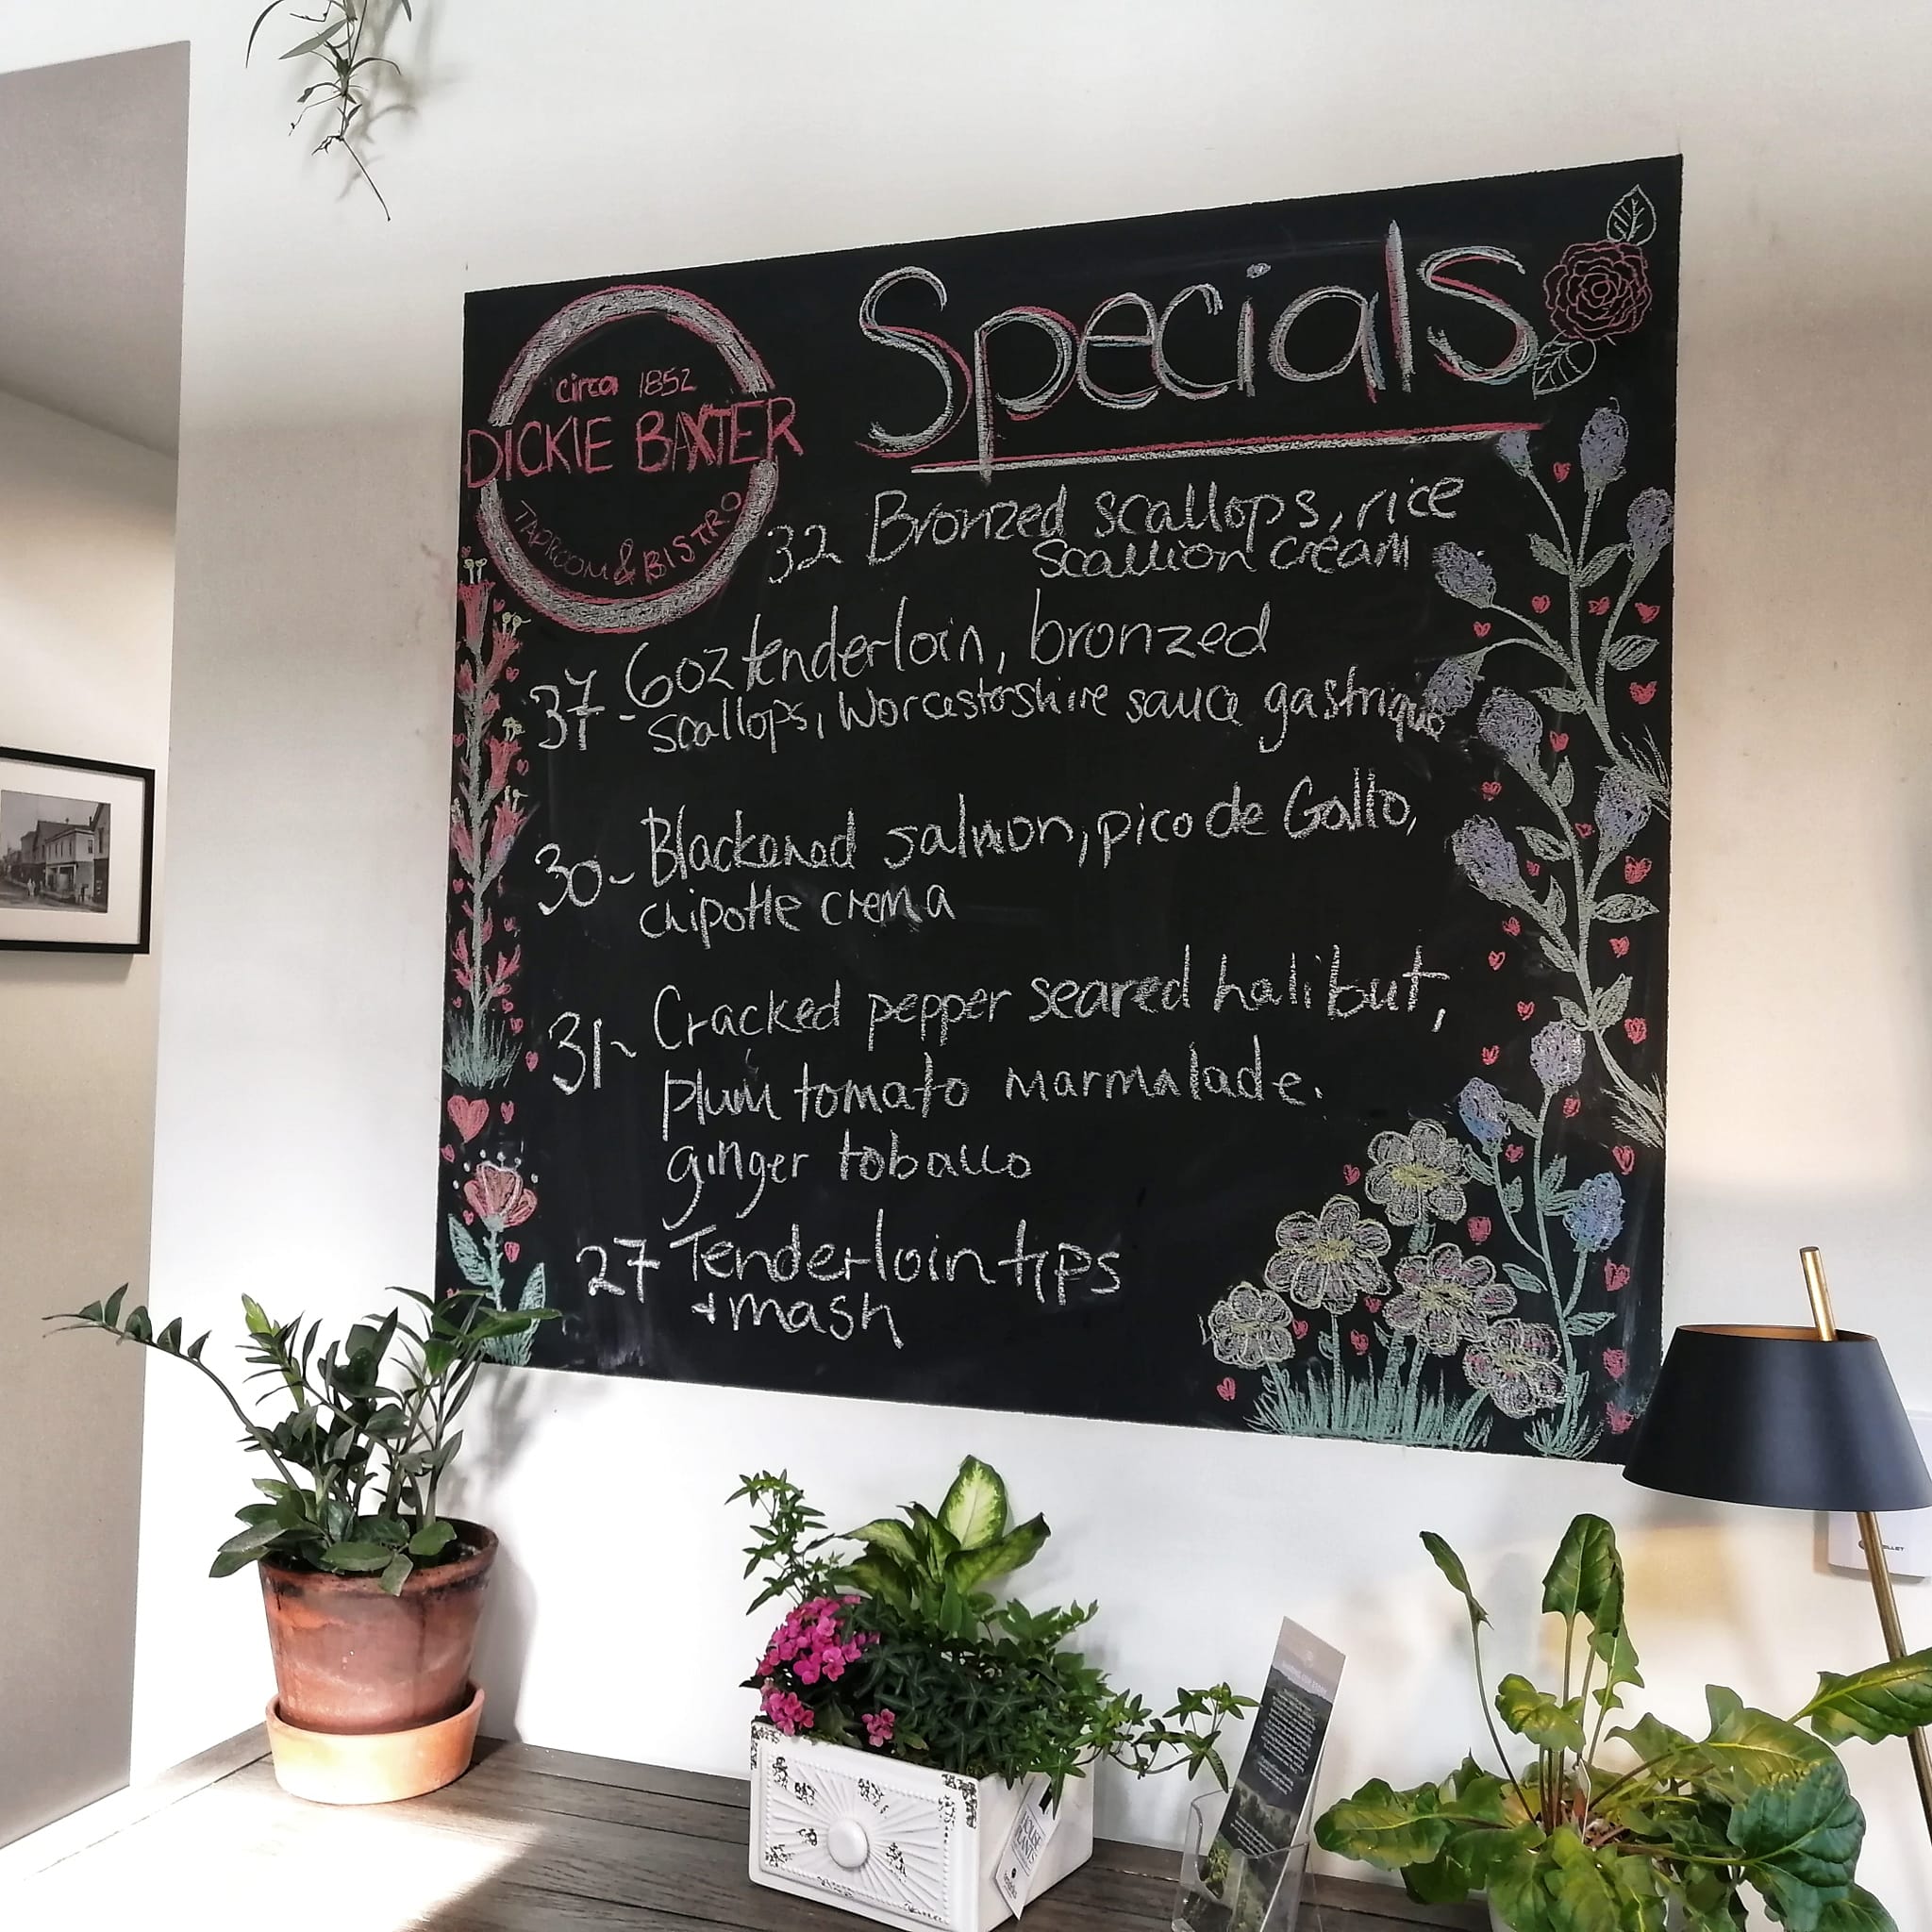 Specials
circa 1852
DICKIE BAXTER
TAPROOM & BISTRO
32 Bronzed scallops, rice
scallion cream
37-6oz tenderloin, bronzed
scallops, Worcestershire sauce gastrique
30- Blackened salmon, pico de Gallo,
chipotle crema
31- Cracked pepper seared halibut,
plum tomato marmalade.
ginger tobacco
27 Tenderloin tips
+ mash
HOUSE
PLANTS